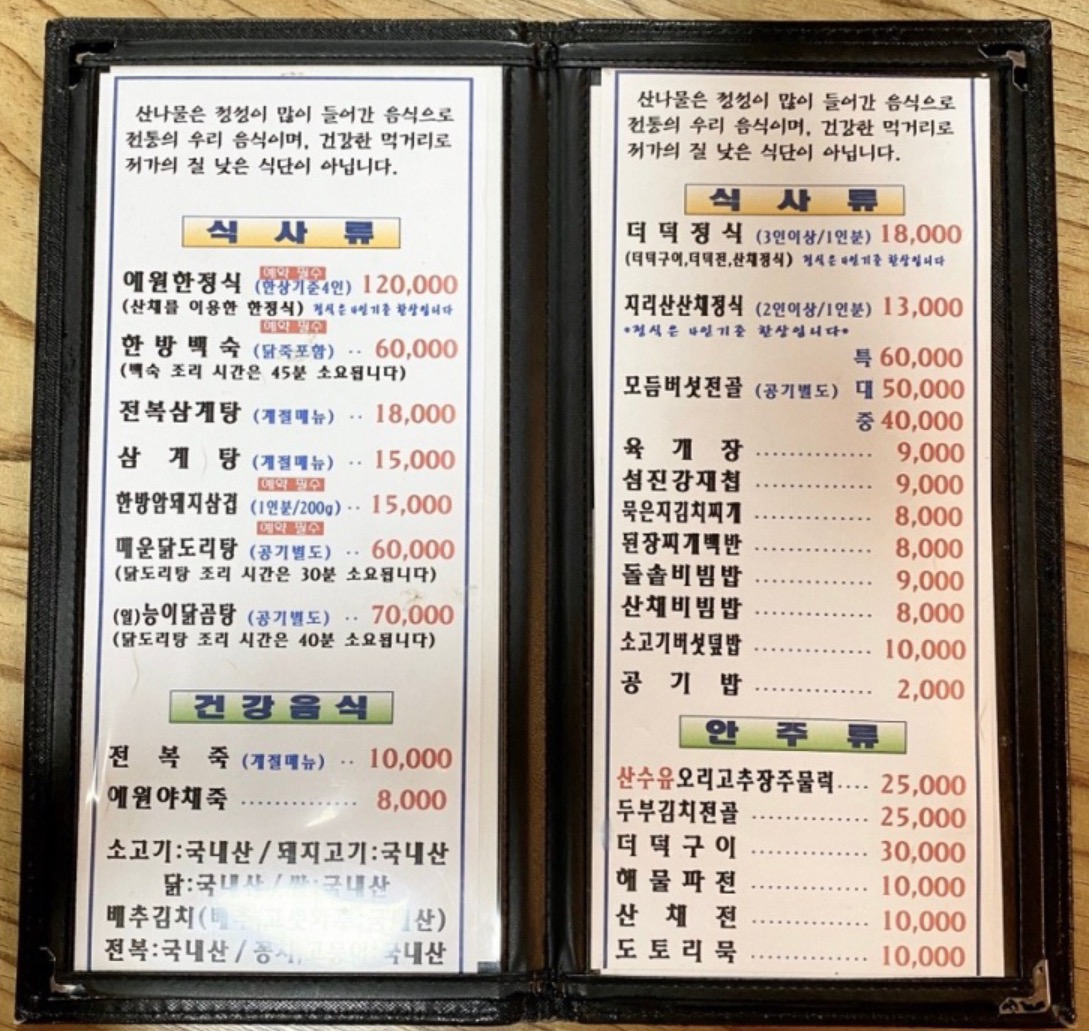 산나물은 정성이 많이 들어간 음식으로
전통의 우리 음식이며, 건강한 먹거리로
저가의 질 낮은 식단이 아닙니다.
식 사 류
예약 필수
예원한정식 (한상기준4인) 120,000
(산채를 이용한 한정식) 정식은 4인기준 한상입니다
예약 필수
한 방 백 숙 (닭죽포함) ‥ 60,000
(백숙 조리 시간은 45분 소요됩니다)
전복삼계탕 (계절메뉴) ‥ 18,000
삼 계 탕 (계절메뉴) ‥ 15,000
예약 필수
한방암돼지삼겹 (1인분/200g) ‥ 15,000
예약 필수
매운닭도리탕 (공기별도) ‥ 60,000
(닭도리탕 조리 시간은 30분 소요됩니다)
(일)능이닭곰탕 (공기별도) ‥ 70,000
(닭도리탕 조리 시간은 40분 소요됩니다)
건강음식
전 복 죽 (계절메뉴) ‥ 10,000
예원야채죽 .............. 8,000
소고기:국내산 / 돼지고기:국내산
닭:국내산 / 쌀:국내산
배추김치(배추,고춧가루:국내산)
전복:국내산 / 꽁치,고등어:국내산
산나물은 정성이 많이 들어간 음식으로
전통의 우리 음식이며, 건강한 먹거리로
저가의 질 낮은 식단이 아닙니다.
식 사 류
더 덕 정 식 (3인이상/1인분) 18,000
(더덕구이,더덕전,산채정식) 정식은 4인기준 한상입니다
지리산산채정식 (2인이상/1인분) 13,000
*정식은 4인기준 한상입니다*
특 60,000
모듬버섯전골 (공기별도) 대 50,000
중 40,000
육 개 장 .............. 9,000
섬진강재첩 .............. 9,000
묵은지김치찌개 .............. 8,000
된장찌개백반 .............. 8,000
돌솥비빔밥 .............. 9,000
산채비빔밥 .............. 8,000
소고기버섯덮밥 .............. 10,000
공 기 밥 .............. 2,000
안 주 류
산수유오리고추장주물럭.... 25,000
두부김치전골 .............. 25,000
더 덕 구 이 .............. 30,000
해 물 파 전 .............. 10,000
산 채 전 .............. 10,000
도 토 리 묵 .............. 10,000